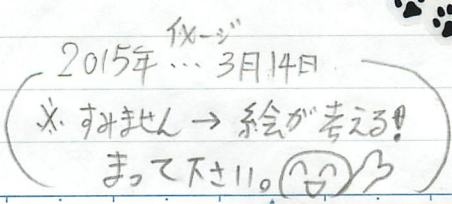 イメージ
2015年…3月14日
※すみません→絵が考える!
まって下さい。